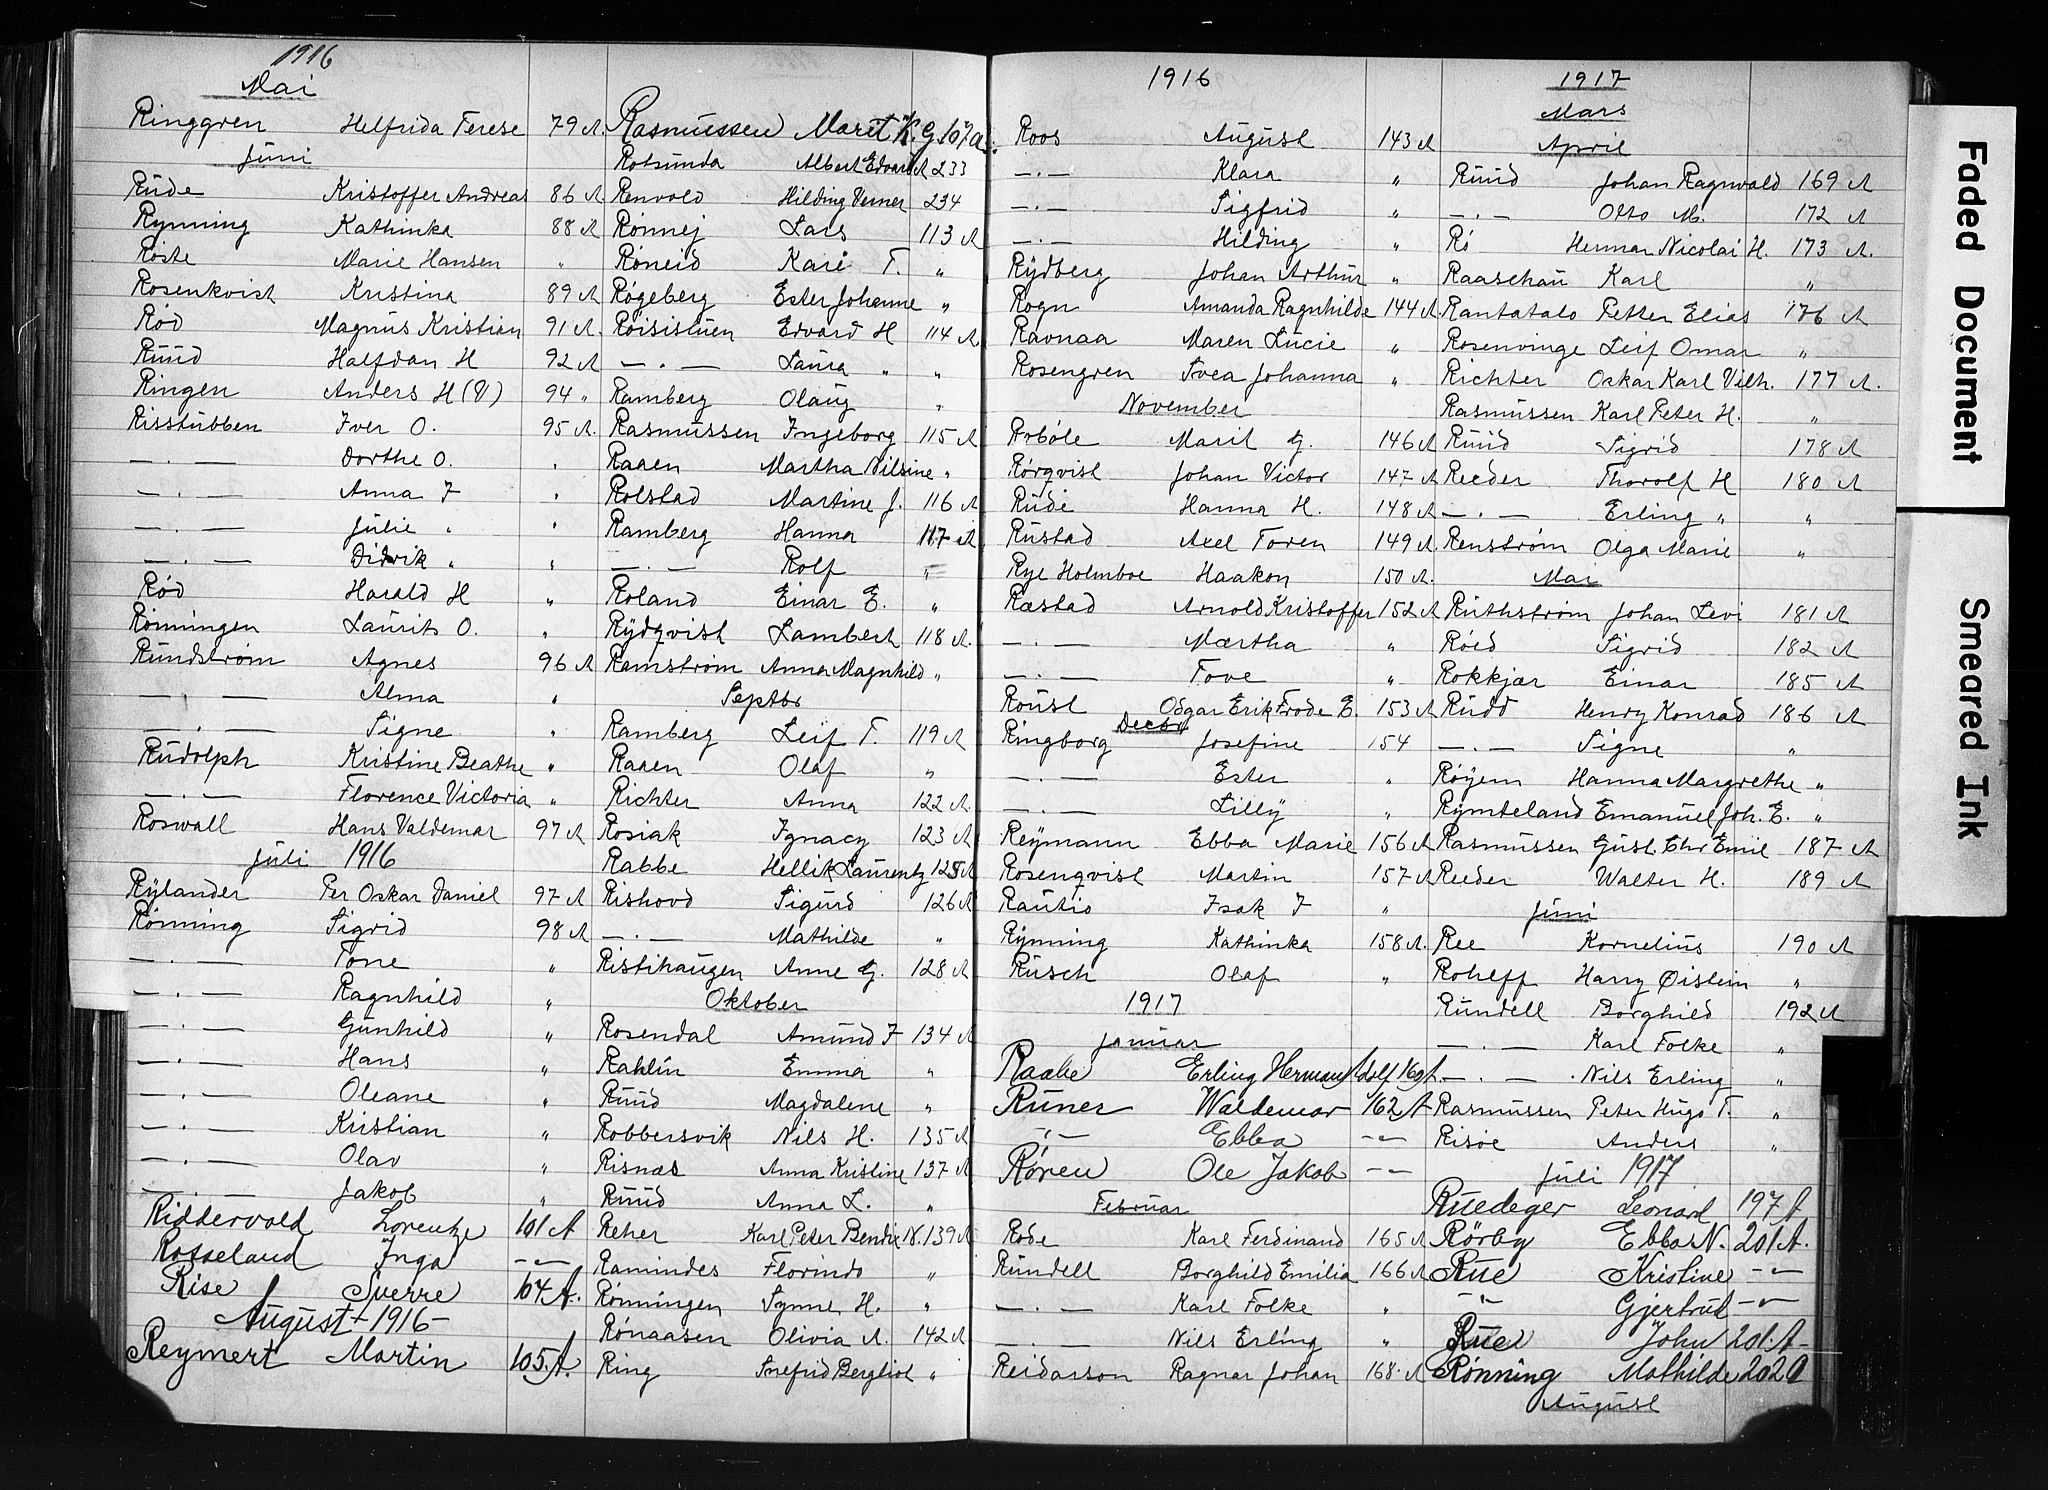 1916
Mai
Ringgren Helfrida Terese 79 A
Juni
Rude Kristoffer Andreas 86 A
Rynning Kathinka 88 A
Røste Marie Hansen "
Rosenkvist Kristina 89 A
Rød Magnus Kristian 91 A.
Ruud Halfdan H 92 A
Ringen Anders H (V) 94 "
Risstubben Iver O. 95 A.
— . — Dorthe O. "
— . — Anna I "
— . — Julie " "
— . — Didrik " "
Rød Harald H "
Rønningen Laurits O. "
Rundstrøm Agnes 96 A
— . — Alma "
— . — Signe "
Rudolph Kristine Beathe "
— . — Florence Victoria "
Roswall Hans Valdemar 97 A
Juli 1916
Rylander Per Oskar Daniel 97 A
Rønning Sigrid 98 A
— . — Tone "
— . — Ragnhild "
— . — Gunhild "
— . — Hans "
— . — Oleane "
— . — Kristian "
— . — Olav "
— . — Jakob "
Riddervold Lorentze 101 A
Rosseland Inga —"—
Rise Sverre 104 A.
August 1916 —
Reymert Martin 105. A.
Rasmussen Marit K. G 107 a.
Rotsunda Albert Edvard A 233
Renvold Hilding Verner 234
Rønnej Lars 113 A
Røneid Kari T. "
Røgeberg Ester Johanne "
Røisistuen Edvard H 114 A
— . — Laura " "
Ramberg Olaug "
Rasmussen Ingeborg 115 A
Raaen Martha Nilsine "
Rolstad Martine J. 116 A
Ramberg Hanna 117 A
— . — Rolf "
Roland Einar E. "
Rydqvist Lambert 118 A.
Ramstrøm Anna Magnhild "
Septbr
Ramberg Leif T. 119 A
Raaen Olaf "
Richter Anna 122 A.
Rosiak Ignacy 123 A
Rabbe Hellik Laurentz 125 A
Rishovd Sigurd 126 A
— . — Mathilde "
Ristihaugen Anne G. 128 A
Oktober
Rosendal Amund I 134 A
Rahlin Emma "
Ruud Magdalene "
Robbersvik Nils H. 135 A
Risnæs Anna Kristine 137 A
Ruud Anna L. "
Reher Karl Peter Bendix N. 139 A
Ramindes Florindo "
Rønningen Synne H. "
Rønaasen Olivia A. 142 A
Ring Snefrid Bergliot "
1916
Roos August 143 A
— . — Klara "
— . — Sigfrid "
— . — Hilding "
Rydberg Johan Arthur "
Rogn Amanda Ragnhilde 144 A.
Ravnaa Maren Lucie "
Rosengren Svea Johanna "
November
Robøle Marit G. 146 A
Rørqvist Johan Victor 147 A
Rude Hanna H. 148 A
Rustad Axel Toren 149 A
Rye Holmboe Haakon 150 A.
Ræstad Arnold Kristoffer 152 A
— . — Mærtha "
— . — Tove "
Roust Odgar Erik Frode E. 153 A
Decbr
Ringborg Josefine 154
— . — Ester "
— . — Lilly "
Reymann Ebba Marie 156 A
Rosenqvist Martin 157 A
Rautio Isak I "
Rynning Kathinka 158 A.
Rusch Olaf "
1917
Januar
Raabe Erling Herman Adolf 160 A.
Runer Waldemar 162 A
— " — Ebba —"—
Røren Ole Jakob —"—
Februar
Rode Karl Ferdinand 165 A
Rundell Borghild Emilia 166 A
— . — Karl Folke "
— . — Nils Erling "
Reidarson Ragnar Johan 168. A
1917
Mars
April
Ruud Johan Ragnvald 169 A
— . — Otto M. 172 A
Rø Herman Nicolai H. 173 A.
Raaschau Karl "
Rantatalo Petter Elias 176 A
Rosenvinge Leif Omar "
Richter Oskar Karl Vilh. 177 A.
Rasmussen Karl Peter H. "
Ruud Sigrid 178 A
Reeder Thorolf H 180 A
— . — Erling " "
Renstrøm Olga Marie "
Mai
Ruthstrøm Johan Levi 181 A
Røed Sigrid 182 A
Rokkjær Einar 185 A
Rudd Henry Konrad 186 A
— . — Signe "
Røyem Hanna Margrethe "
Rymteland Emanuel Joh. E. "
Rasmussen Gust. Chr Emil 187 A
Reeder Walter H. 189 A
Juni
Ree Kornelius 190 A
Roheff Harry Øistein "
Rundell Borghild 192 A
— . — Karl Folke "
— . — Nils Erling "
Rasmussen Peter Hugo T. "
Risøe Anders "
Juli 1917
Ruedeger Leonard 197 A
Rörby Ebba N. 201 A.
Rue Kristine —"—
— " — Gjertrud —"—
Rue John 201. A —
Rønning Mathilde 202 A
August
Faded Document
Smeared Ink